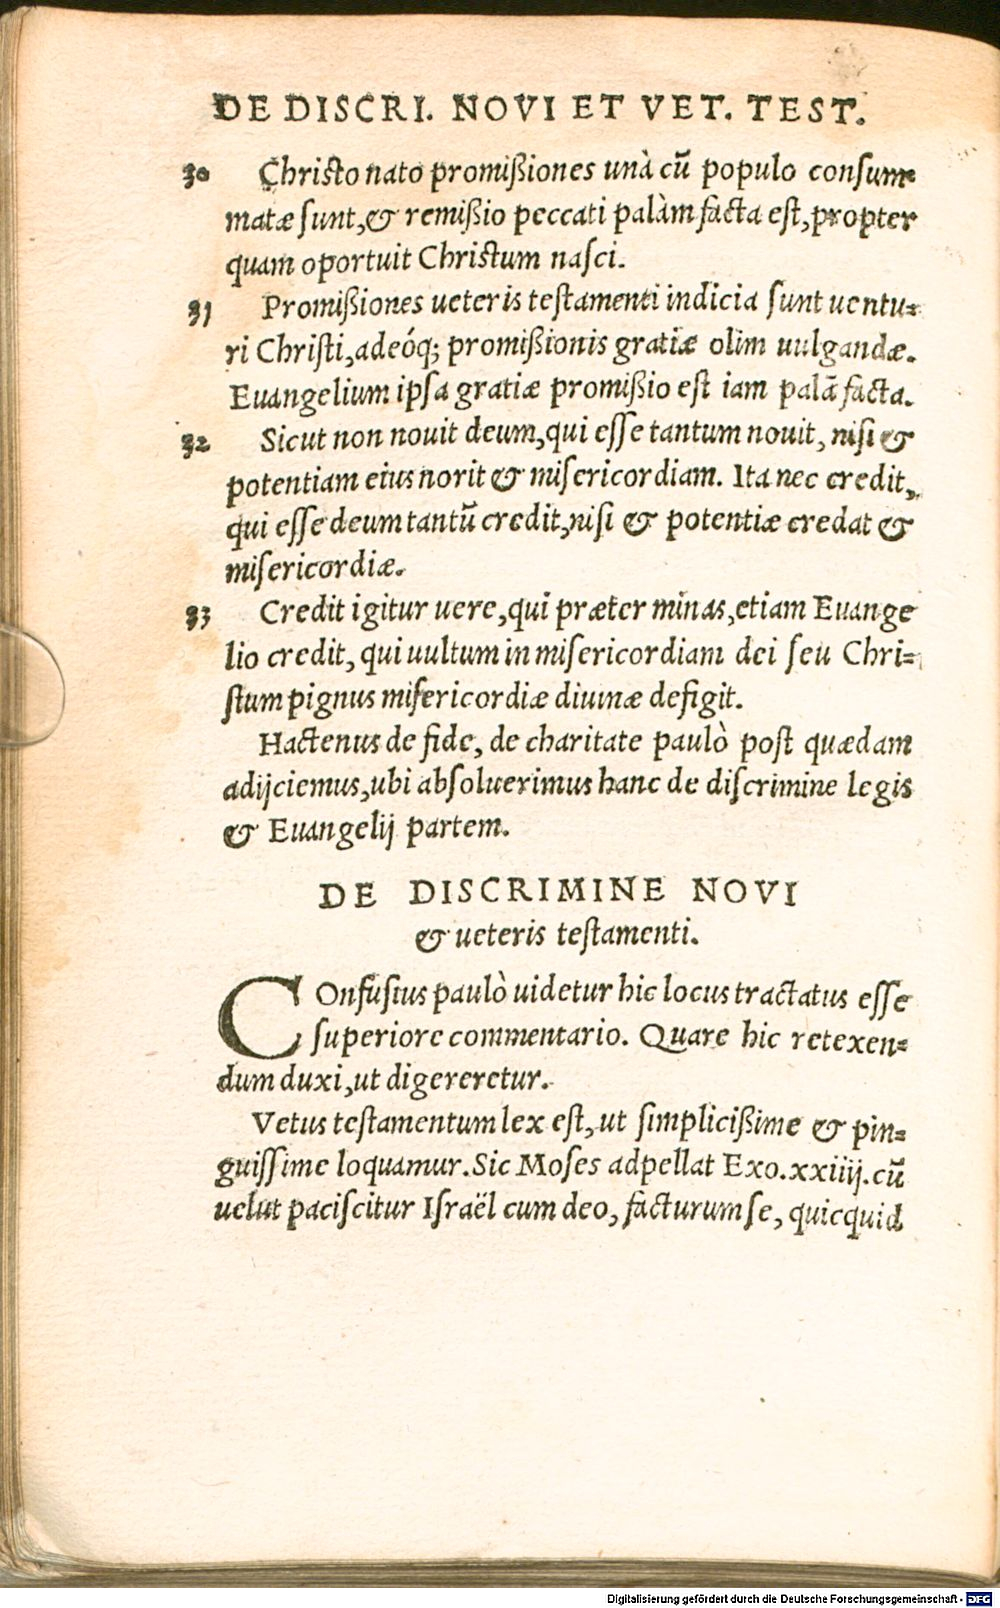 DE DISCRI. NOVI ET VET. TEST.
30 Christo nato promißiones unà cũ populo consum=
matæ sunt, & remißio peccati palàm facta est, propter
quam oportuit Christum nasci.
31 Promißiones ueteris testamenti indicia sunt uentu=
ri Christi, adeóq; promißionis gratiæ olim uulgandæ.
Euangelium ipsa gratiæ promißio est iam palã facta.
32 Sicut non nouit deum, qui esse tantum nouit, nisi &
potentiam eius norit & misericordiam. Ita nec credit,
qui esse deum tantũ credit, nisi & potentiæ credat &
misericordiæ.
33 Credit igitur uere, qui præter minas, etiam Euange
lio credit, qui uultum in misericordiam dei seu Chri=
stum pignus misericordiæ diuinæ defigit.
Hactenus de fide, de charitate paulò post quædam
adijciemus, ubi absoluerimus hanc de discrimine legis
& Euangelij partem.
DE DISCRIMINE NOVI
& ueteris testamenti.
COnfusius paulò uidetur hic locus tractatus esse
superiore commentario. Quare hic retexen=
dum duxi, ut digereretur.
Vetus testamentum lex est, ut simplicißime & pin=
guissime loquamur. Sic Moses adpellat Exo. xxiiij. cũ
uelut paciscitur Israël cum deo, facturum se, quicquid
Digitalisierung gefördert durch die Deutsche Forschungsgemeinschaft - DFG